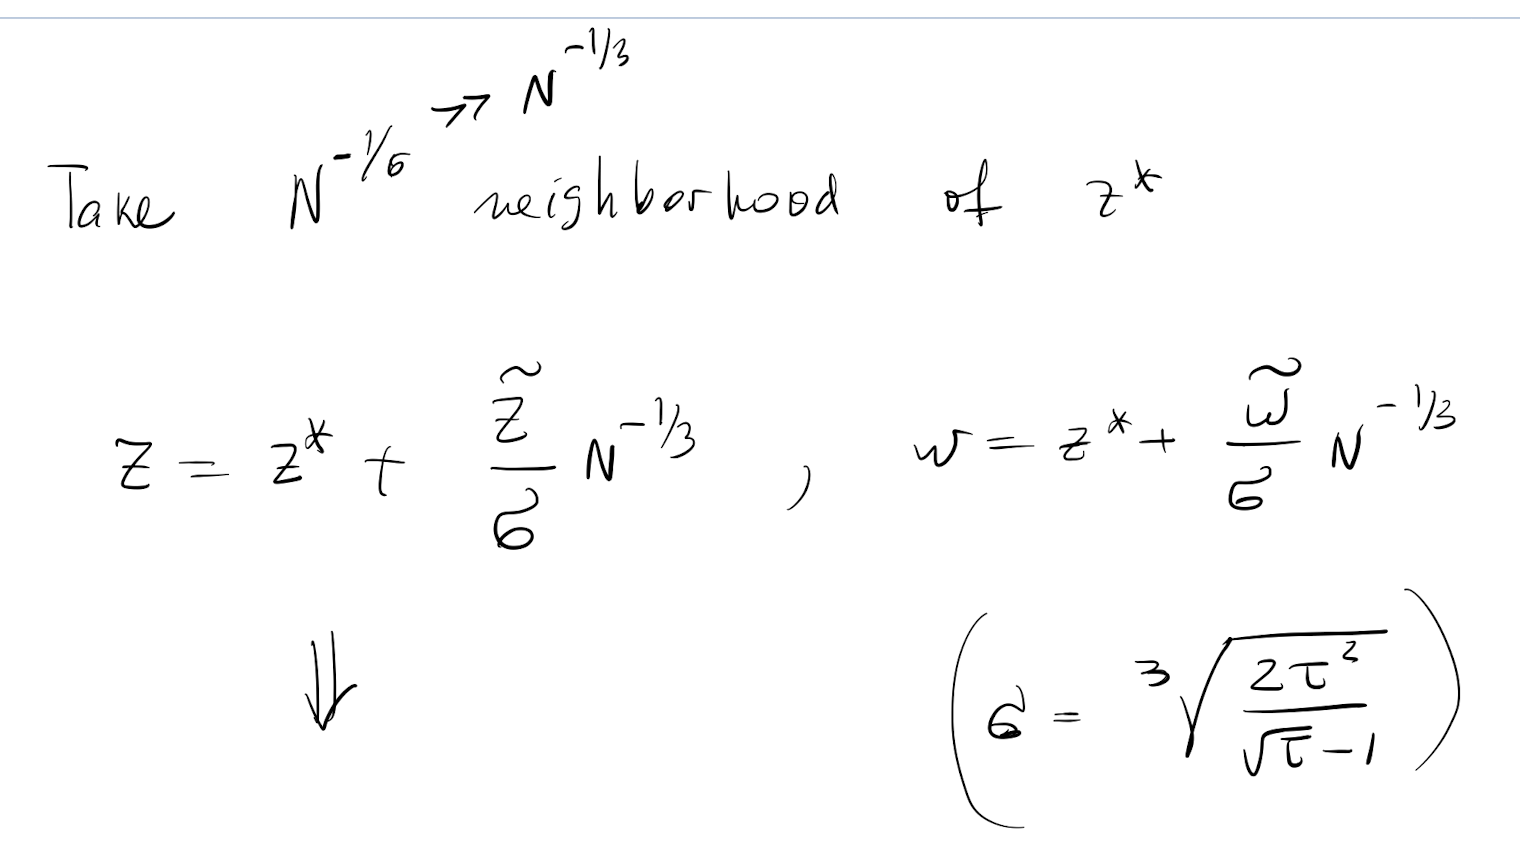 Take N^{-1/6} →→ N^{-1/3} neighborhood of z*
z = z* + \frac{\tilde{z}}{σ} N^{-1/3} , w = z* + \frac{\tilde{w}}{σ} N^{-1/3}
⇓ (σ = \sqrt[3]{\frac{2τ^2}{\sqrt{τ}-1}})